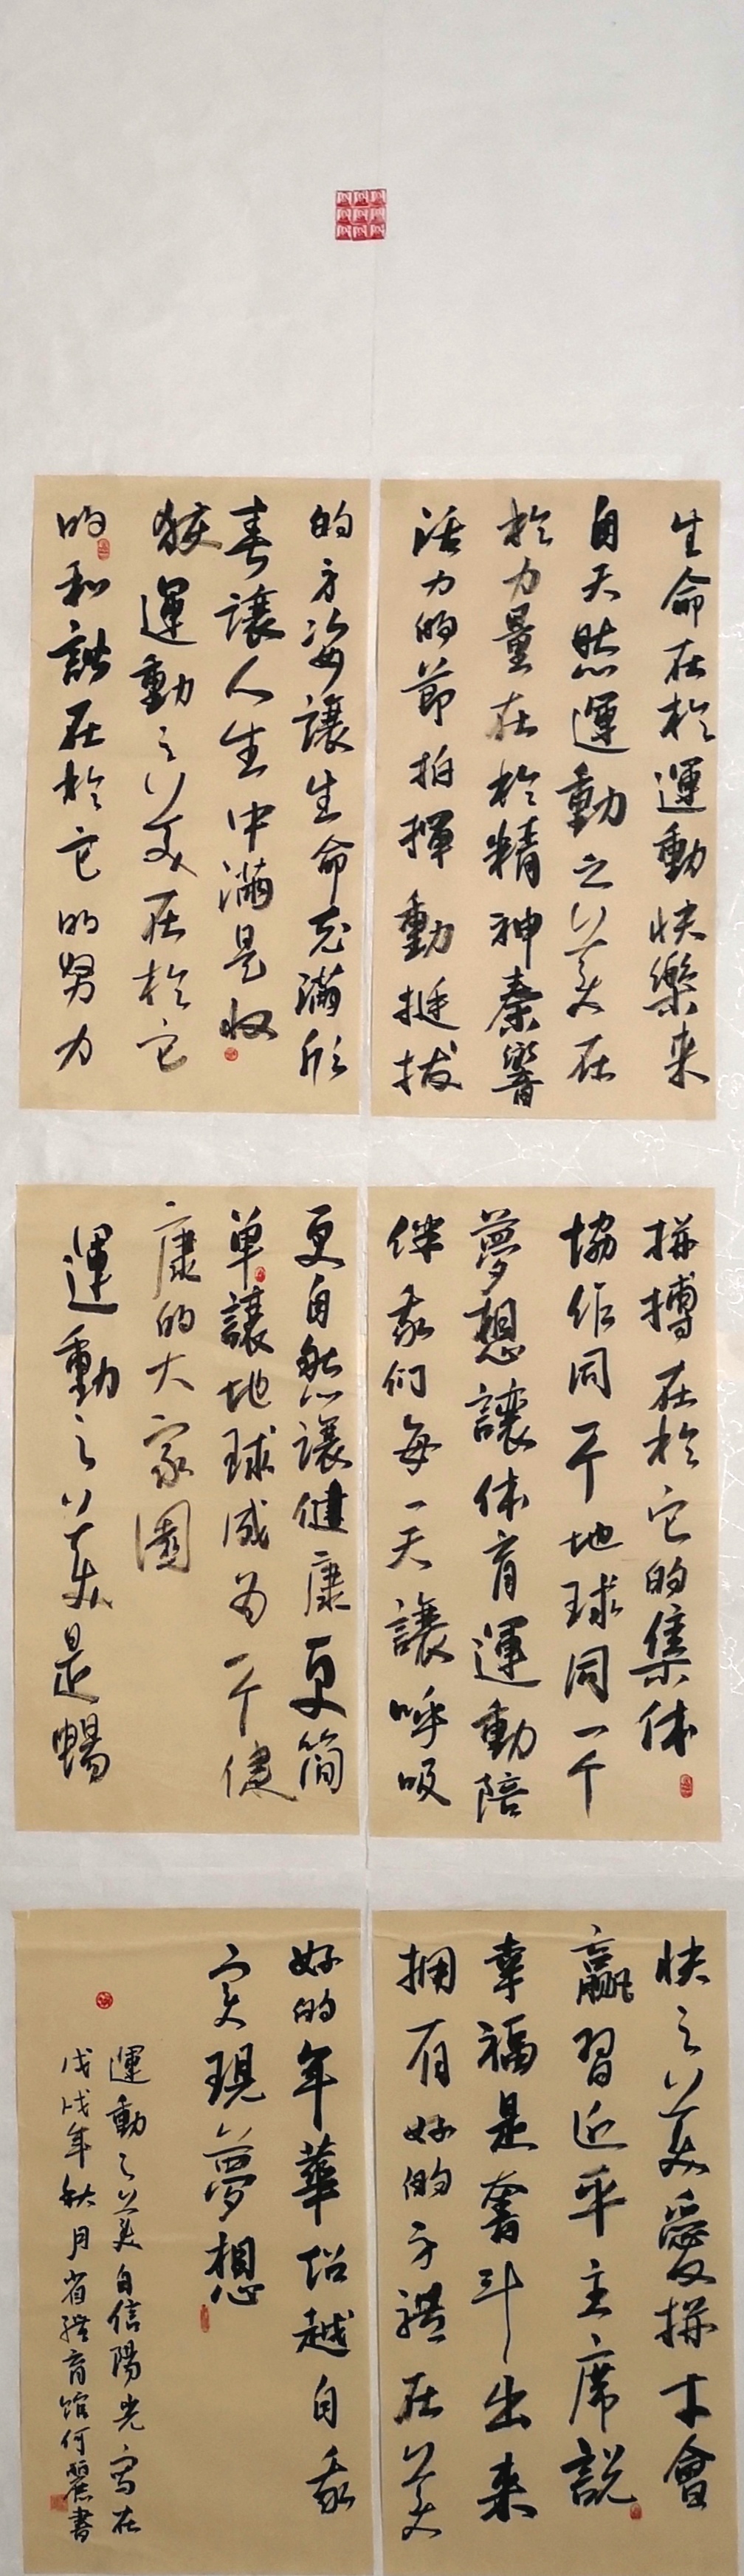 生命在於運動快樂来
自天然運動之美在
於力量在於精神奏響
活力的節拍揮動挺拔
的身姿讓生命充滿形
春讓人生中滿是收
獲運動之美在於它
的和諧在於它的努力
拼搏在於它的集体
協作同一个地球同一个
夢想讓体育運動陪
伴我们每一天讓呼吸
更自然讓健康更简
单讓地球成为一个健
康的大家園
運動之美是暢
快之美愛拼才會
贏習近平主席説
幸福是奮斗出来
拥有好的身體在美
好的年華超越自我
实現夢想
運動之美自信陽光寫在
戊戌年秋月省體育馆何麗書